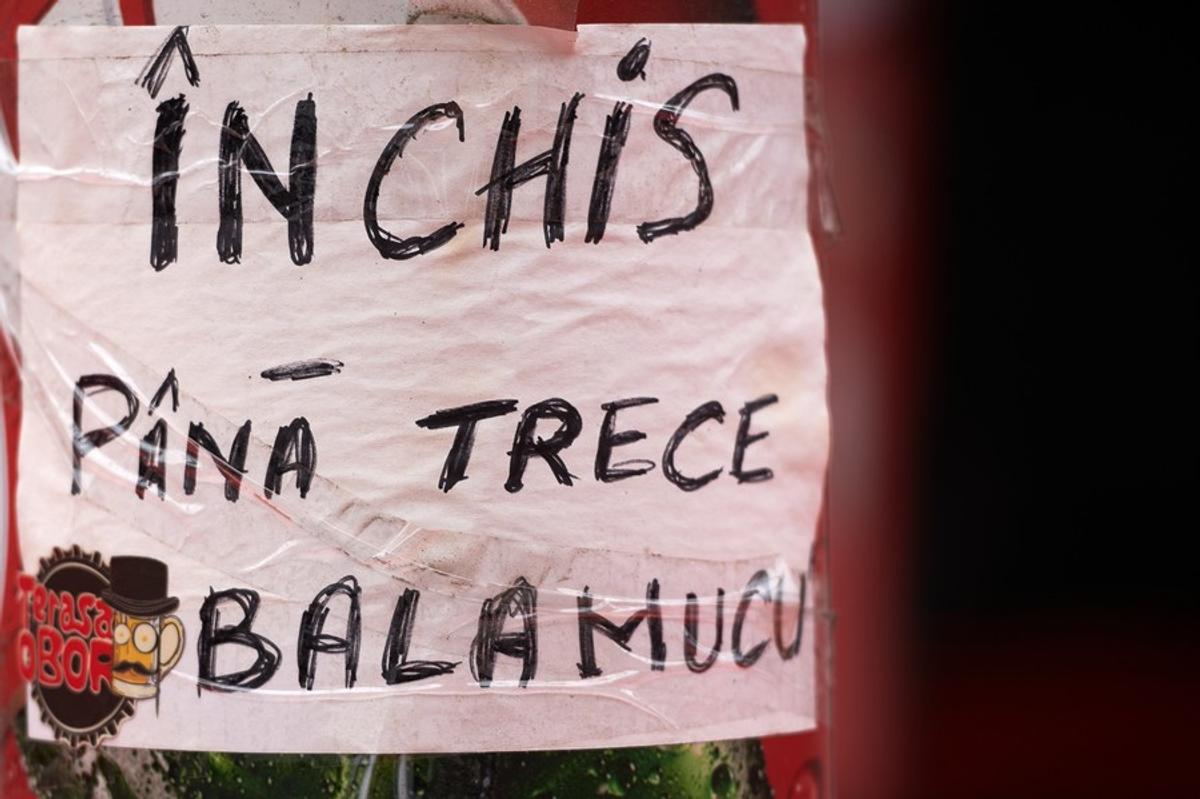 ÎNCHiS
PÂNĀ TRECE
BALAMUCU
Terasa
OBOR